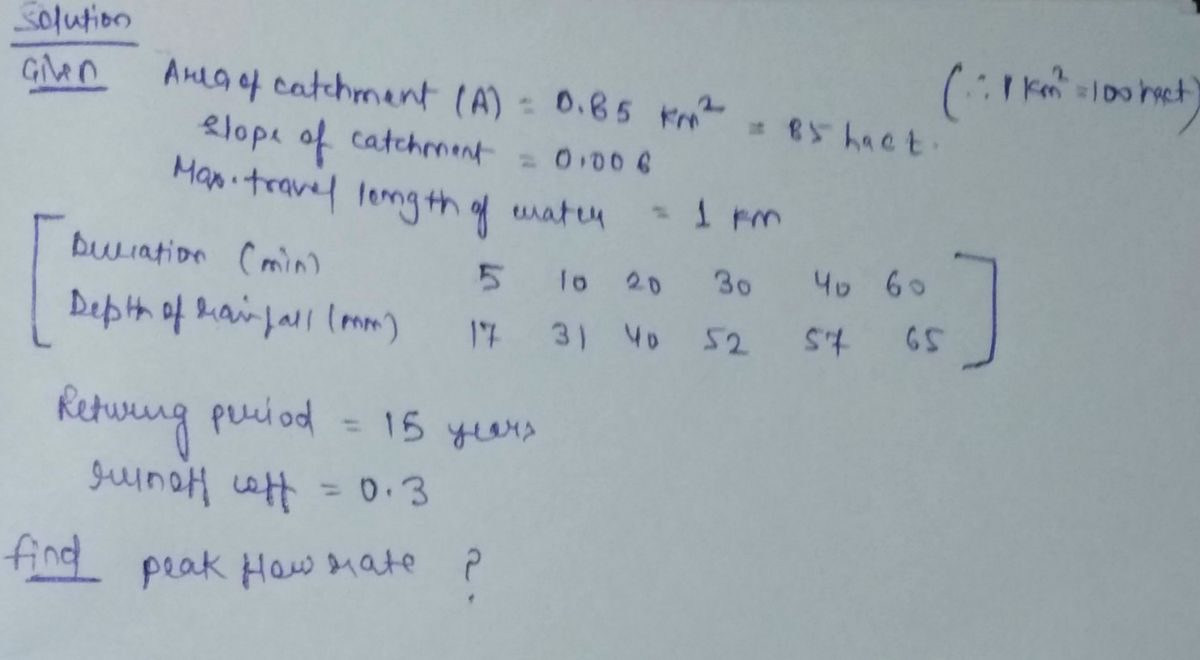 Solution
Given Area of catchment (A) = 0.85 km² = 85 hact. (∵ 1 km² = 100 hact)
Slope of catchment = 0.006
Max. travel length of water = 1 km
Duration (min) 5 10 20 30 40 60
Depth of rainfall (mm) 17 31 40 52 57 65
Returing period = 15 years
runoff coff = 0.3
find peak flow rate ?